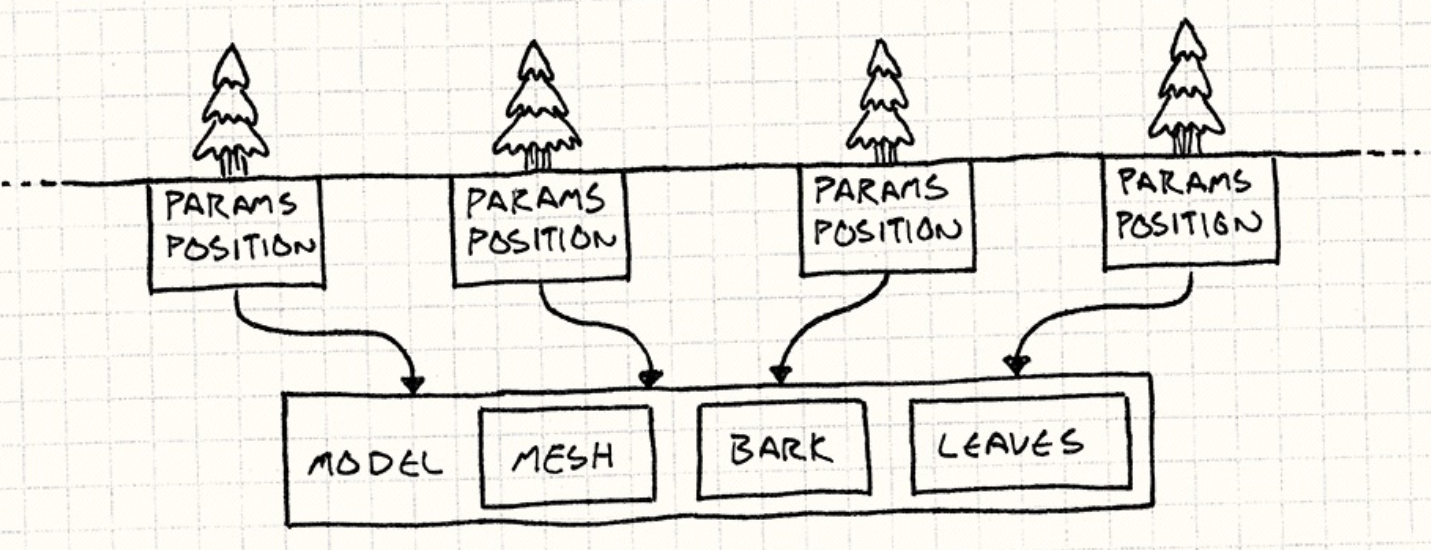 PARAMS
POSITION
PARAMS
POSITION
PARAMS
POSITION
PARAMS
POSITION
MODEL
MESH
BARK
LEAVES